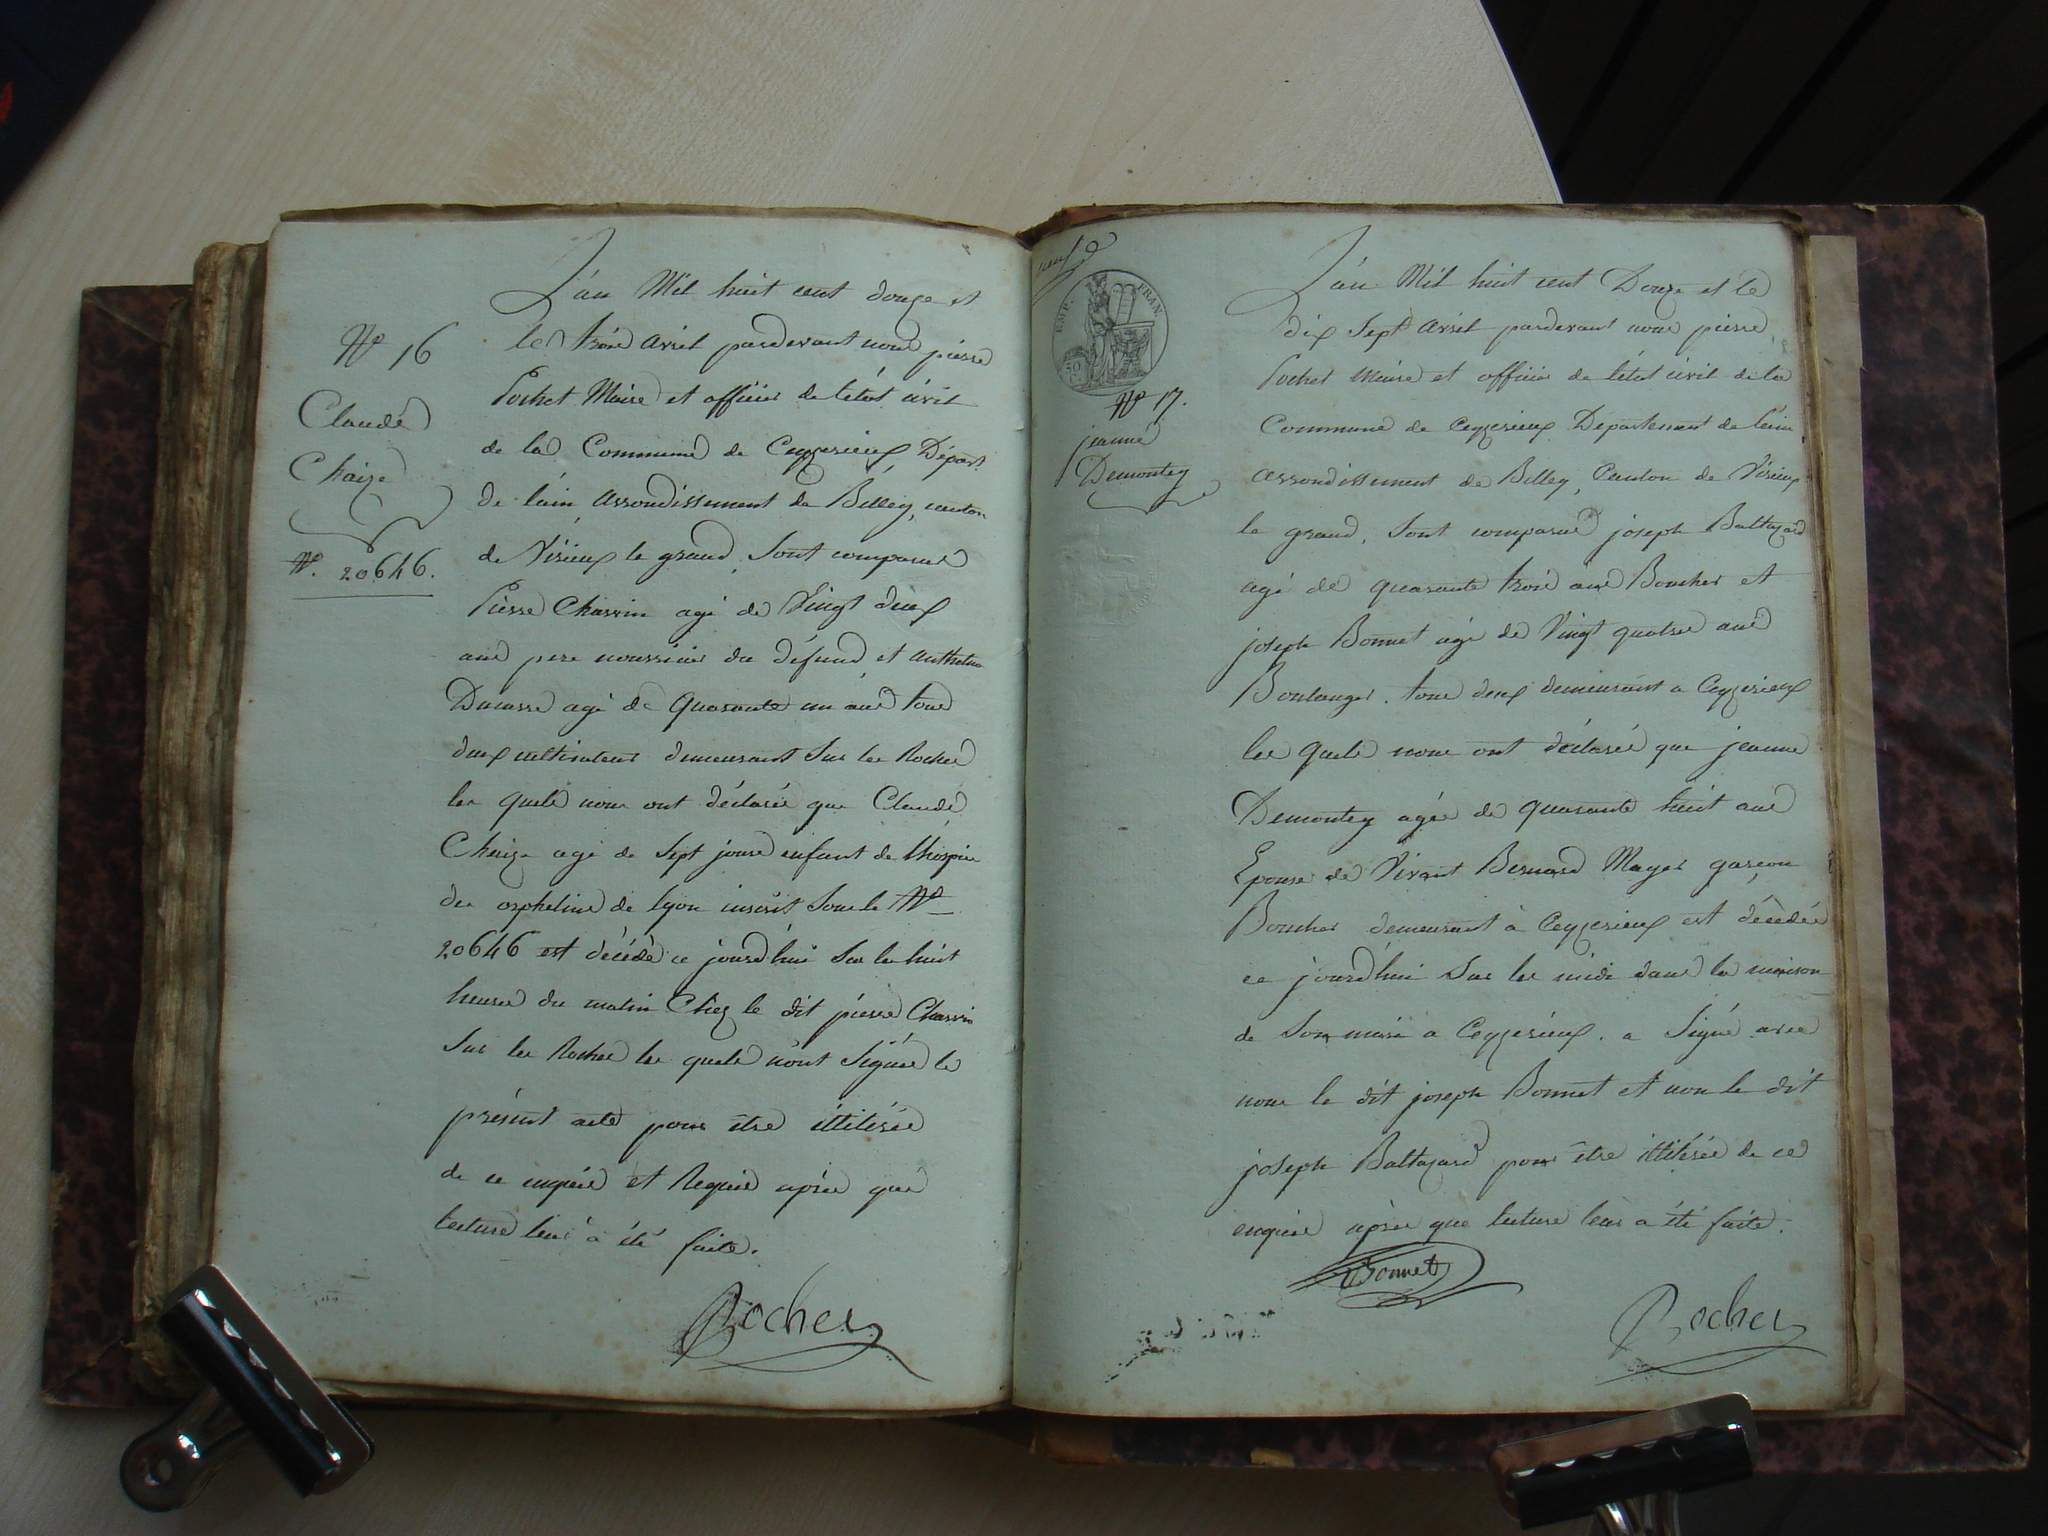 N° 16
Claude
Chaize
N°. 20646.
L'an Mil huit cent douze et
le trois avril pardevant nous pierre
Rochet Maire et officier de l'état civil
de la Commune de Ceyzerieux Départ
de l'ain arrondissement de Belley, canton
de Virieux le grand, Sont comparus
Pierre Charvin agé de Vingt deux
ans pere nourricier du défund et anthelme
Ducarre agé de quarante un ans tous
deux cultivateurs demeurant Sur les Roches
les quels nous ont déclarés que Claude
Chaize agé de Sept jours enfant de l'hospice
des orphelins de Lyon inscrit Sous le N°
20646 est décédé ce jourd'hui Sur les huit
heures du matin Chez le dit pierre Charvin
Sur les Roches les quels n'ont Signés le
présent acte pour être illitérés
de ce enquis et Requis après que
lecture leur a été faite.
Rochet
EMP. FRAN.
50
N° 17.
jeanne
Demontey
L'an Mil huit cent Douze et le
dix Sept avril pardevant nous pierre
Rochet Maire et officier de l'état civil de la
Commune de Ceyzerieux Departement de l'ain
arrondissement de Belley, Canton de Virieux
le grand, Sont comparus joseph Baltazard
agé de quarante trois ans Boucher et
joseph Bonnet agé de Vingt quatre ans
Boulanger. tous deux demeurant a Ceyzerieux
les quels nous ont déclarés que jeanne
Demontey agée de quarante huit ans
Epouse de Vivant Bernard Mayer garcon
Boucher demeurant à Ceyzerieux est décédée
ce jourd'hui Sur les midi dans la maison
de Son mari a Ceyzerieux. a Signé avec
nous le dit joseph Bonnet et non le dit
joseph Baltazard pour être illitérée de ce
enquis après que lecture leur a été faite.
Bonnet
Rochet